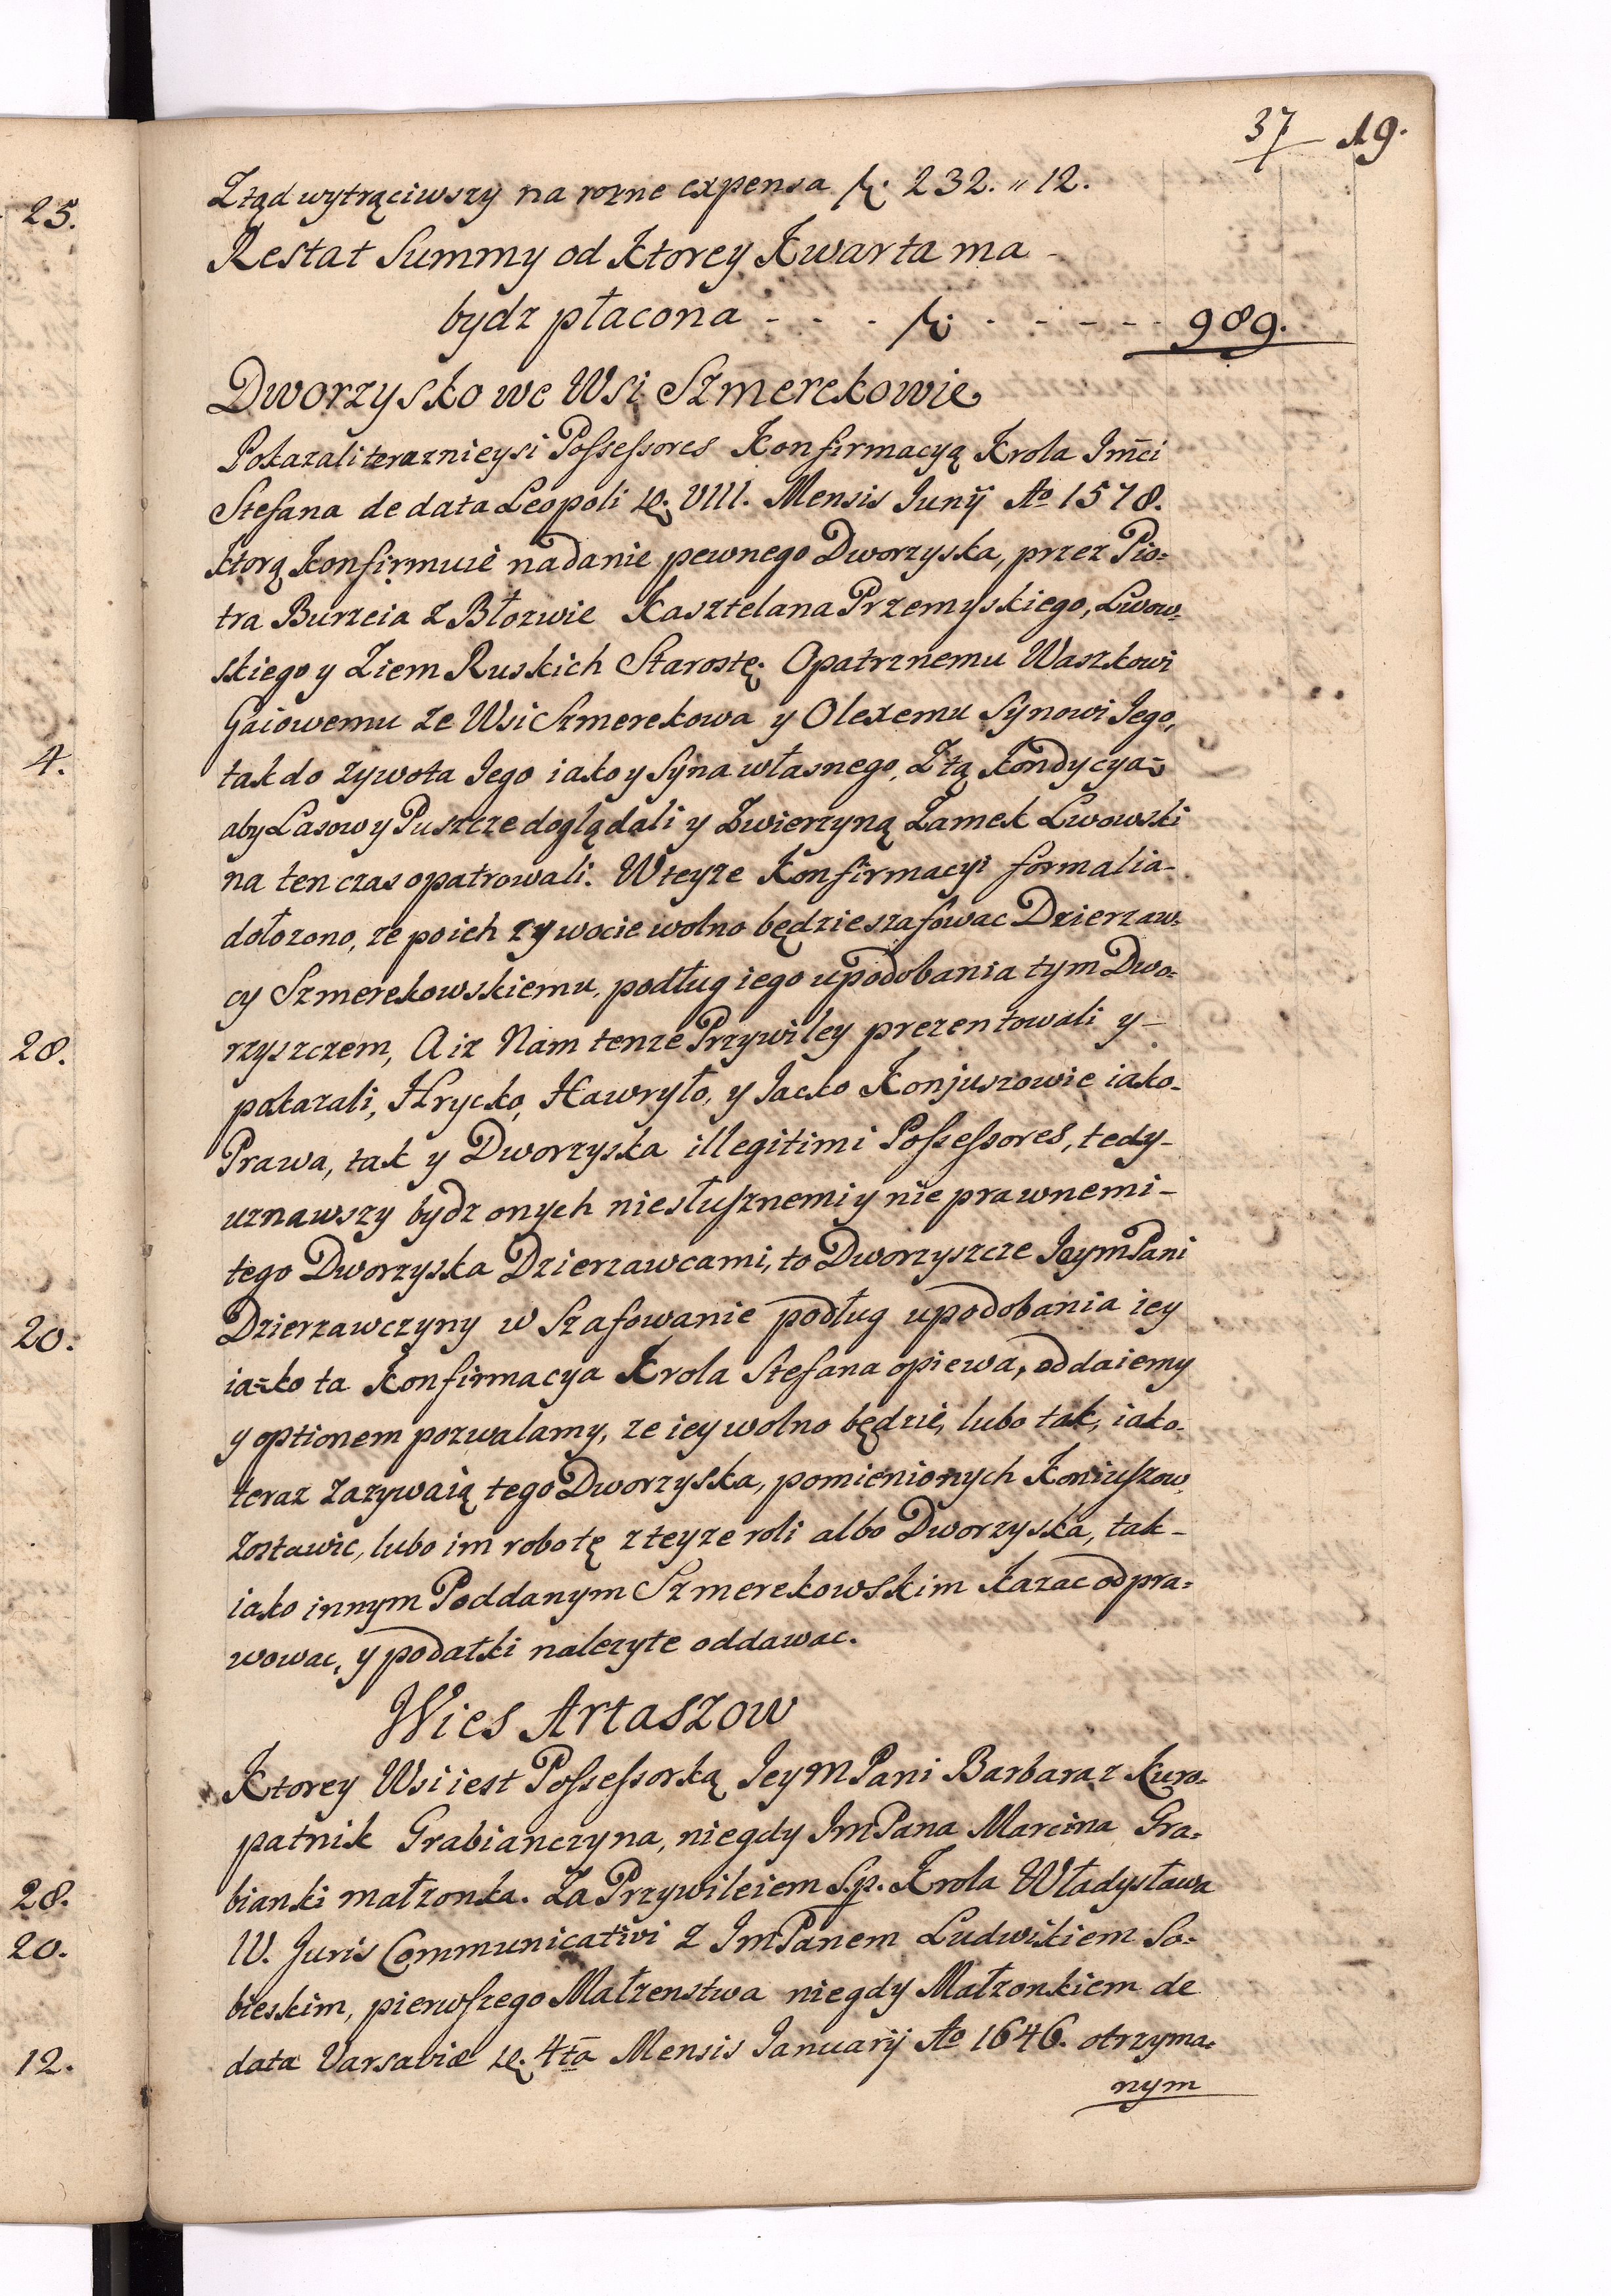 37 19.
Ztąd wytrąciwszy na rozne expensa f. 232. " 12.
Restat Summy od Ktorey Kwarta ma -
bydz płacona - - - f. - - - - - 989.
Dworzysko we Wsi Szmerekowie
Pokazali teraznieysi Possessores Konfirmacyą Krola Jmci
Stefana de data Leopoli D. VIII. Mensis Junij Ao 1578.
ktorą Konfirmuie nadanie pewnego Dworzyska, przez Pio=
tra Burzeia z Błozwie Kasztelana Przemyskiego, Lwow=
skiego y Ziem Ruskich Starostę. Opatrznemu Waszkowi
Gaiowemu ze Wsi Szmerekowa y Olexemu Synowi Iego,
tak do zywota Iego iako y Syna własnego, Z tą Kondycya=
aby Lasow y Puszcze doglądali y Zwierzyną Zamek Lwowski
na ten czas opatrowali. W teyze Konfirmacyi formalia-
dołozono, ze po ich zywocie wolno będzie szafowac Dzierzaw=
cy Szmerekowskiemu, podług iego upodobania tym Dwo=
rzyszczem, A iz Nam tenze Przywiley prezentowali y-
pokazali, Hrycko, Hawryło, y Iacko Konjuszowie iako-
Prawa, tak y Dworzyska illegitimi Possessores, tedy-
uznawszy bydz onych niesłusznemi y nie prawnemi-
tego Dworzyska Dzierzawcami, to Dworzyszcze IeymPani
Dzierzawczyny w Szafowanie podług upodobania iey
ia=ko ta Konfirmacya Krola Stefana opiewa, oddaiemy
y optionem pozwalamy, ze iey wolno będzie, lubo tak, iako-
teraz zazywaią tego Dworzyska, pomienionych Koniuszow
zostawic, lubo im robotę z teyze roli albo Dworzyska, tak-
iako innym Poddanym Szmerekowskim kazac odpra=
wowac, y podatki nalezyte oddawac.
Wies Artaszow
Ktorey Wsi iest Possessorką IeymPani Barbara z Kuro=
patnik Grabianczyna, niegdy ImPana Marcina Gra=
bianki małzonka. Za Przywileiem S.p. Krola Władysława
IV. Juris Communicativi z ImPanem Ludwikiem So=
bieskim, pierwszego Małzenstwa niegdy Małzonkiem de
data Varsaviæ D. 4ta Mensis Ianuarij Ao 1646. otrzyma=
nym
25.
4.
28.
20.
28.
20.
12.